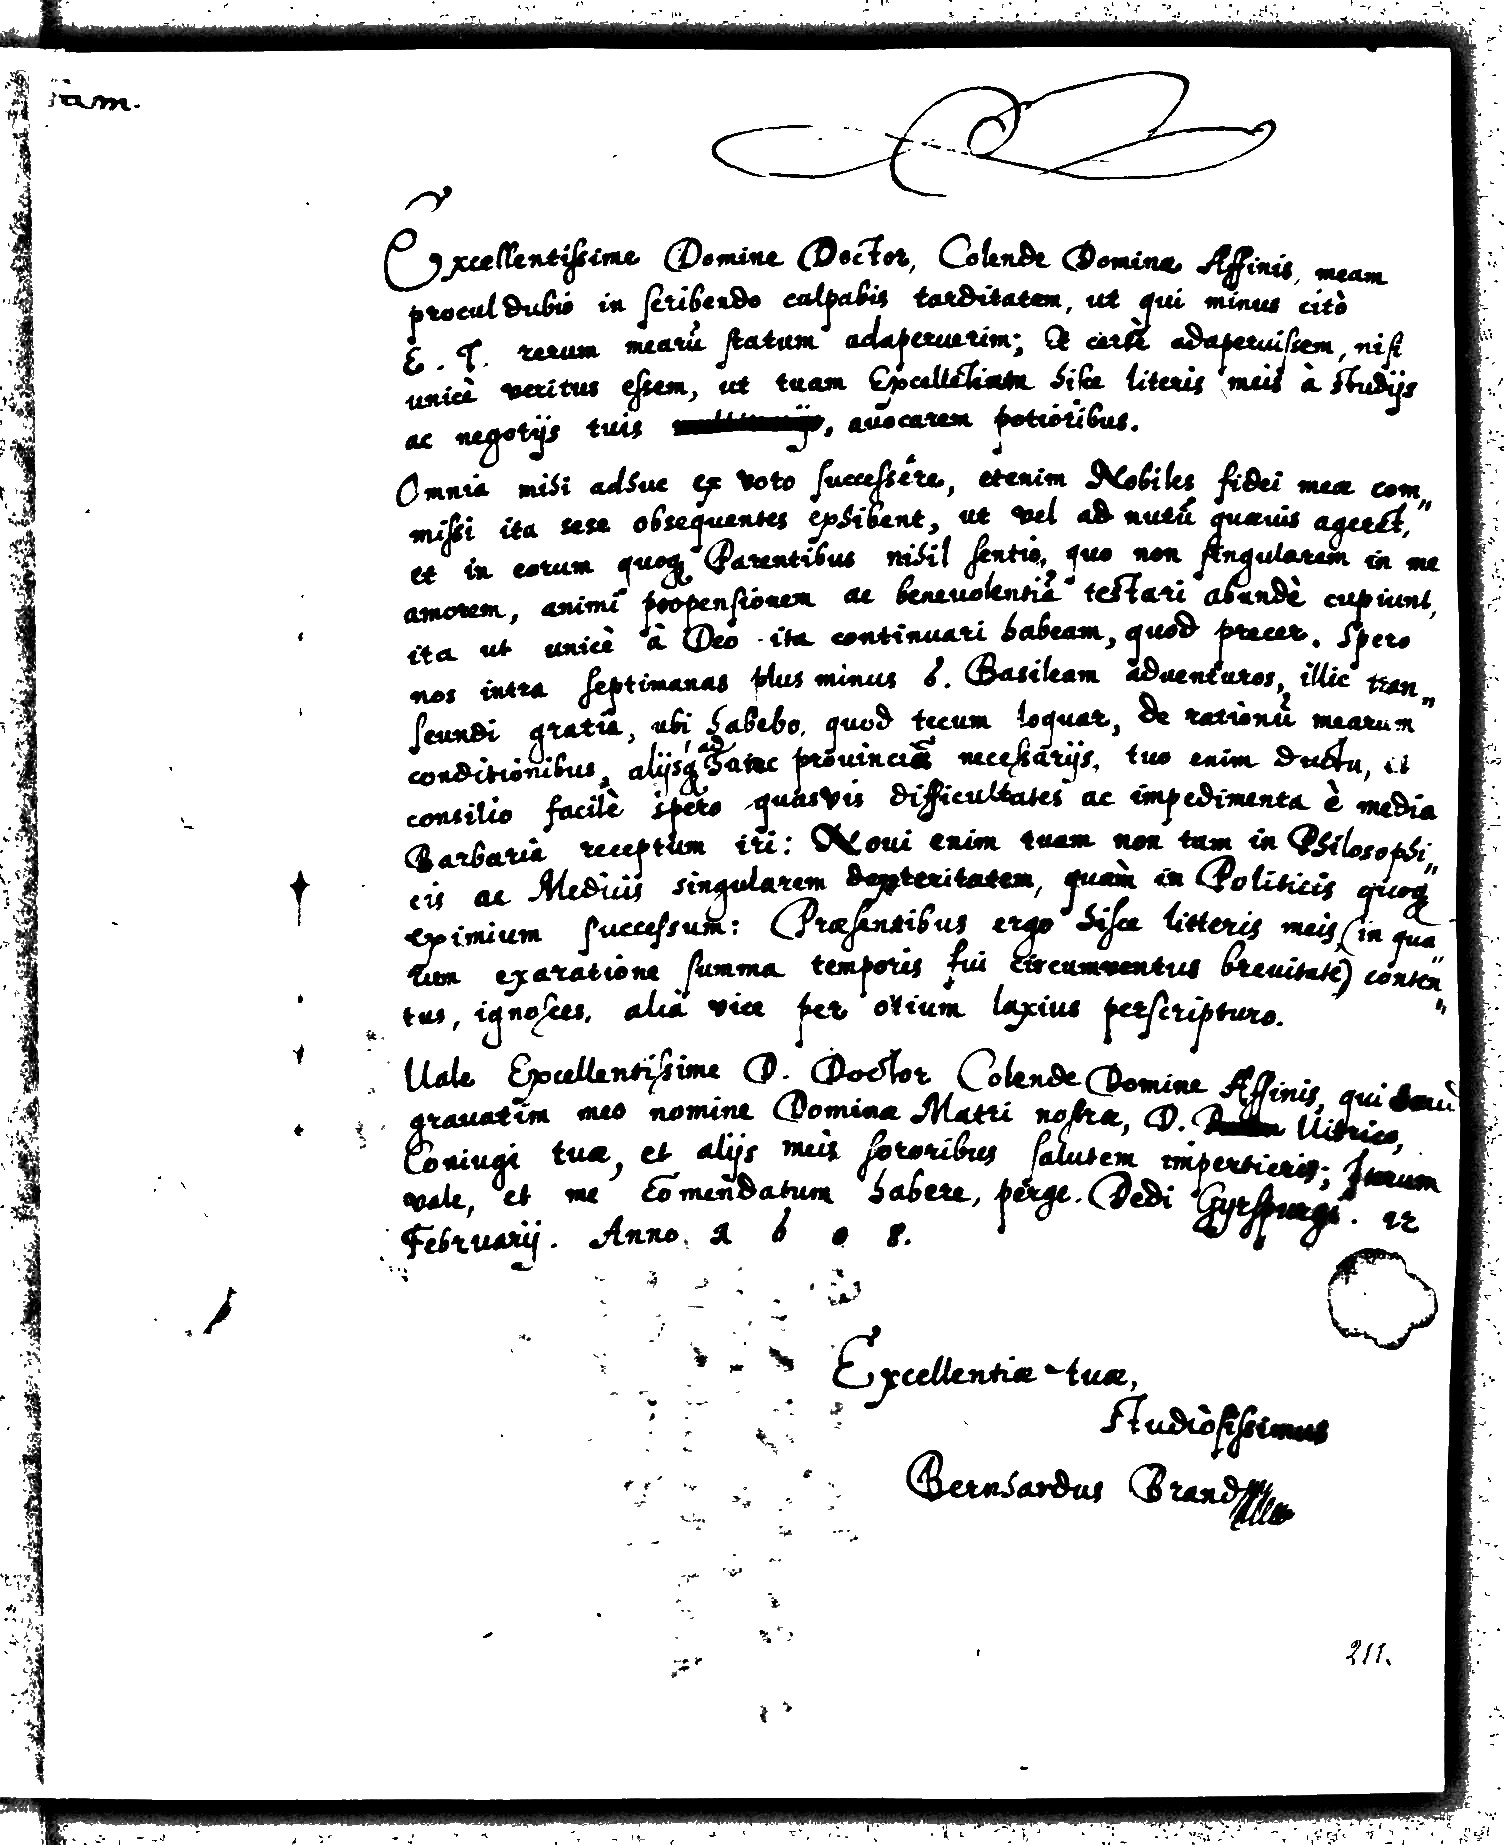 tam.
Excellentissime Domine Doctor, Colende Domine Affinis, meam
procul dubio in scribendo culpabis tarditatem, ut qui minus citò
E. T. rerum mearū statum adaperuerim; Et certè adaperuissem, nisi
unicè veritus essem, ut tuam Excellētiam hisce literis meis à studijs
ac negotijs tuis , auocarem potioribus.
Omnia mihi adhuc ex voto successêre, etenim Nobiles fidei meæ com„
missi ita sese obsequentes exhibent, ut vel ad nutū quæuis agerēt,
et in eorum quoq Parentibus nihil sentio, quo non singularem in me
amorem, animi propensionem ac beneuolentiā testari abundè cupiunt,
ita ut unicè à Deo ita continuari habeam, quod precer. Spero
nos intra septimanas plus minus 6. Basileam aduenturos, illic tran„
seundi gratia, ubi habebo, quod tecum loquar, de rationū mearum
conditionibus, alijsq ad hanc prouinciā necessarijs, tuo enim ductu, et
consilio facilè spero quasvis difficultates ac impedimenta è media
Barbaria receptum iri: Noui enim tuam non tam in Philosophi„
cis ac Medicis singularem dexteritatem, quàm in Politicis quoq
eximium successum: Præsentibus ergo hisce litteris meis (in qua„
rum exaratione summa temporis fui circumventus breuitate) conten„
tus, ignosces, alià vice per otium laxius perscripturo.
Vale Excellentissime D. Doctor Colende Domine Affinis, qui
gravatim meo nomine Dominæ Matri nostræ, D. Vitrico,
Coniugi tuæ, et alijs meis sororibus salutem impertieris; Iterum
vale, et me cōmendatum habere, perge. Dedi Gyrspurgi. 12
Februarij. Anno. 1 6 0 8.
Excellentiæ tuæ,
Studiosissimus
Bernhardus Brand
211.